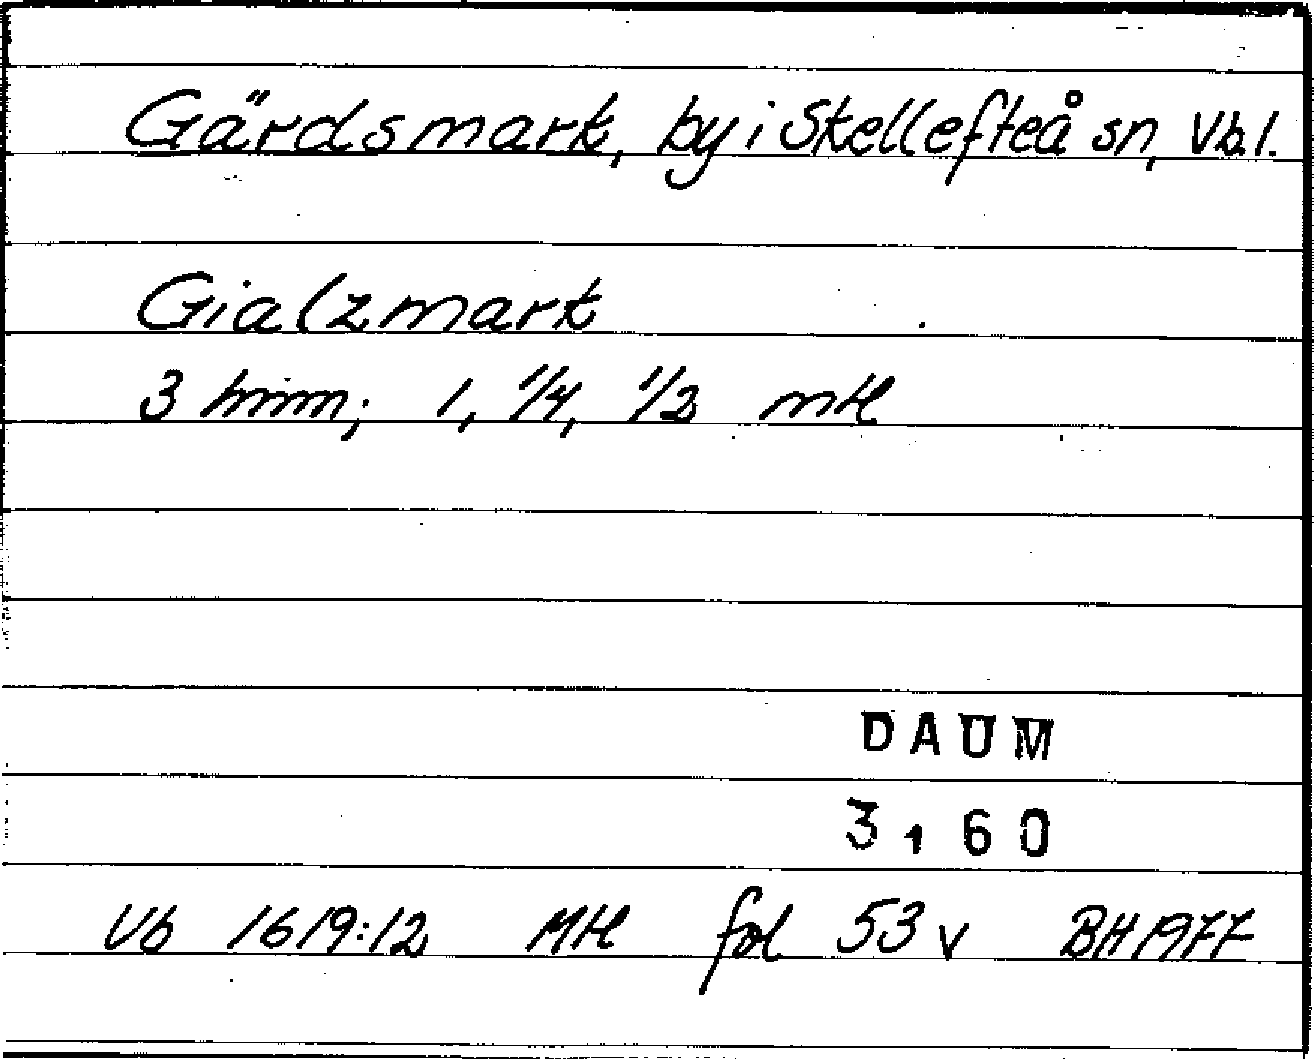 Gärdsmark, by i Skellefteå sn, Vb.l.
Gialzmark
3 hmm; 1, 1/4, 1/2 mtl
DAUM
3160
Vb 1619:12 Mtl fol 53 v BH 1977